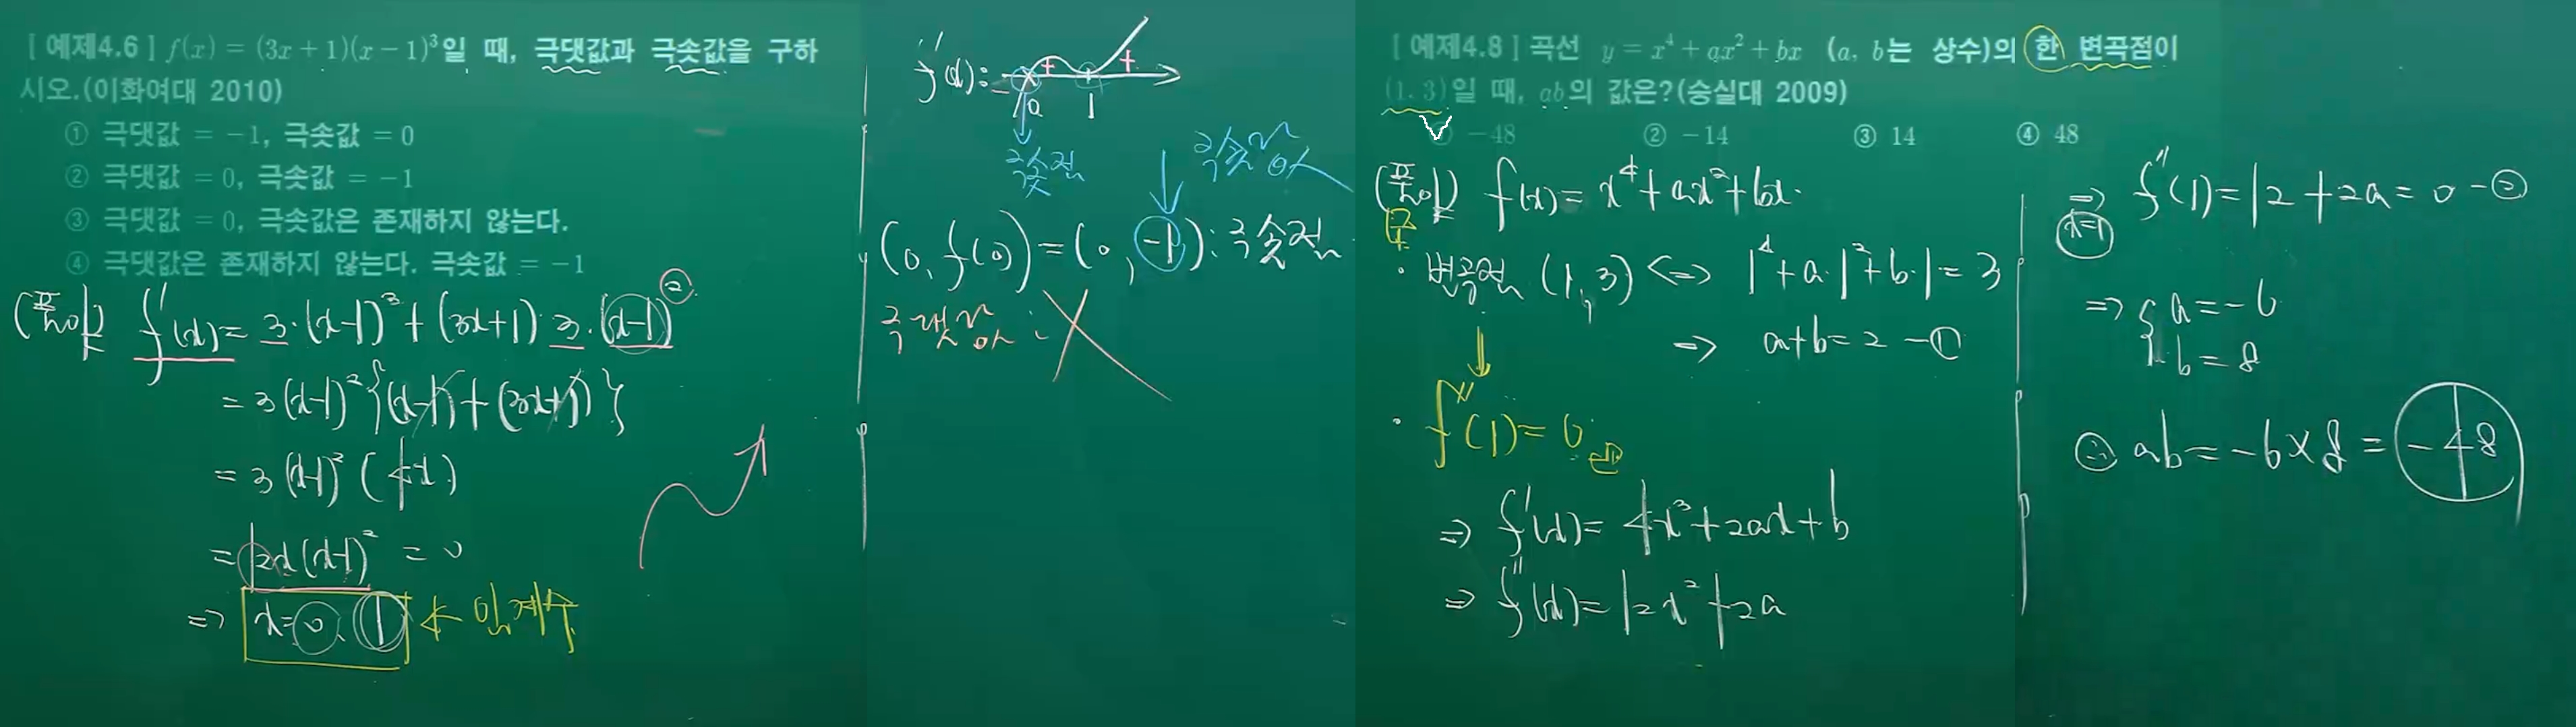 [ 예제4.6 ] f(x) = (3x + 1)(x − 1)³일 때, 극댓값과 극솟값을 구하
시오.(이화여대 2010)
① 극댓값 = −1, 극솟값 = 0
② 극댓값 = 0, 극솟값 = −1
③ 극댓값 = 0, 극솟값은 존재하지 않는다.
④ 극댓값은 존재하지 않는다. 극솟값 = −1
(풀이) f'(x) = 3·(x-1)³ + (3x+1)·3·(x-1)²
= 3(x-1)² {(x-1) + (3x+1)}
= 3(x-1)² (4x)
= 12x(x-1)² = 0
⇒ x = 0, 1 ← 임계수
f'(x): − + +
0 1
극솟점
극솟값
(0, f(0)) = (0, -1): 극솟점
극댓값: X
[ 예제4.8 ] 곡선 y = x⁴ + ax² + bx (a, b는 상수)의 한 변곡점이
(1, 3)일 때, ab의 값은?(숭실대 2009)
① −48 ② −14 ③ 14 ④ 48
(풀이) f(x) = x⁴ + ax² + bx.
· 변곡점 (1, 3) <=> 1⁴ + a·1² + b·1 = 3
⇒ a+b = 2 - ①
· f''(1) = 0
⇒ f'(x) = 4x³ + 2ax + b
⇒ f''(x) = 12x² + 2a
⇒ f''(1) = 12 + 2a = 0 - ②
x=1
⇒ { a = -6
b = 8
∴ ab = -6 × 8 = -48